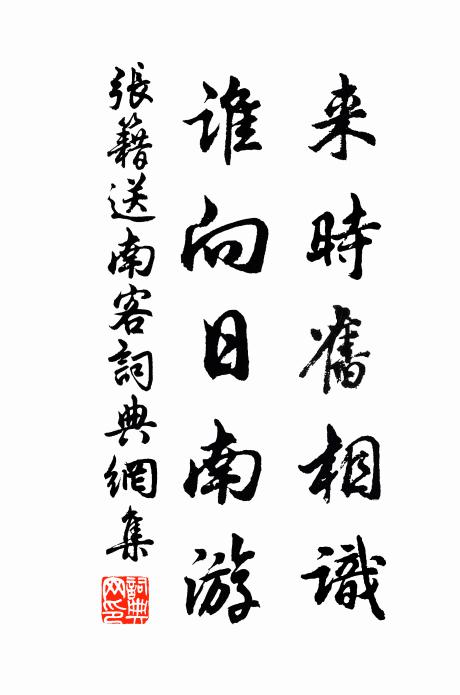 来時舊相識
誰向日南游
張籍送南客詞典網集
詞典網印